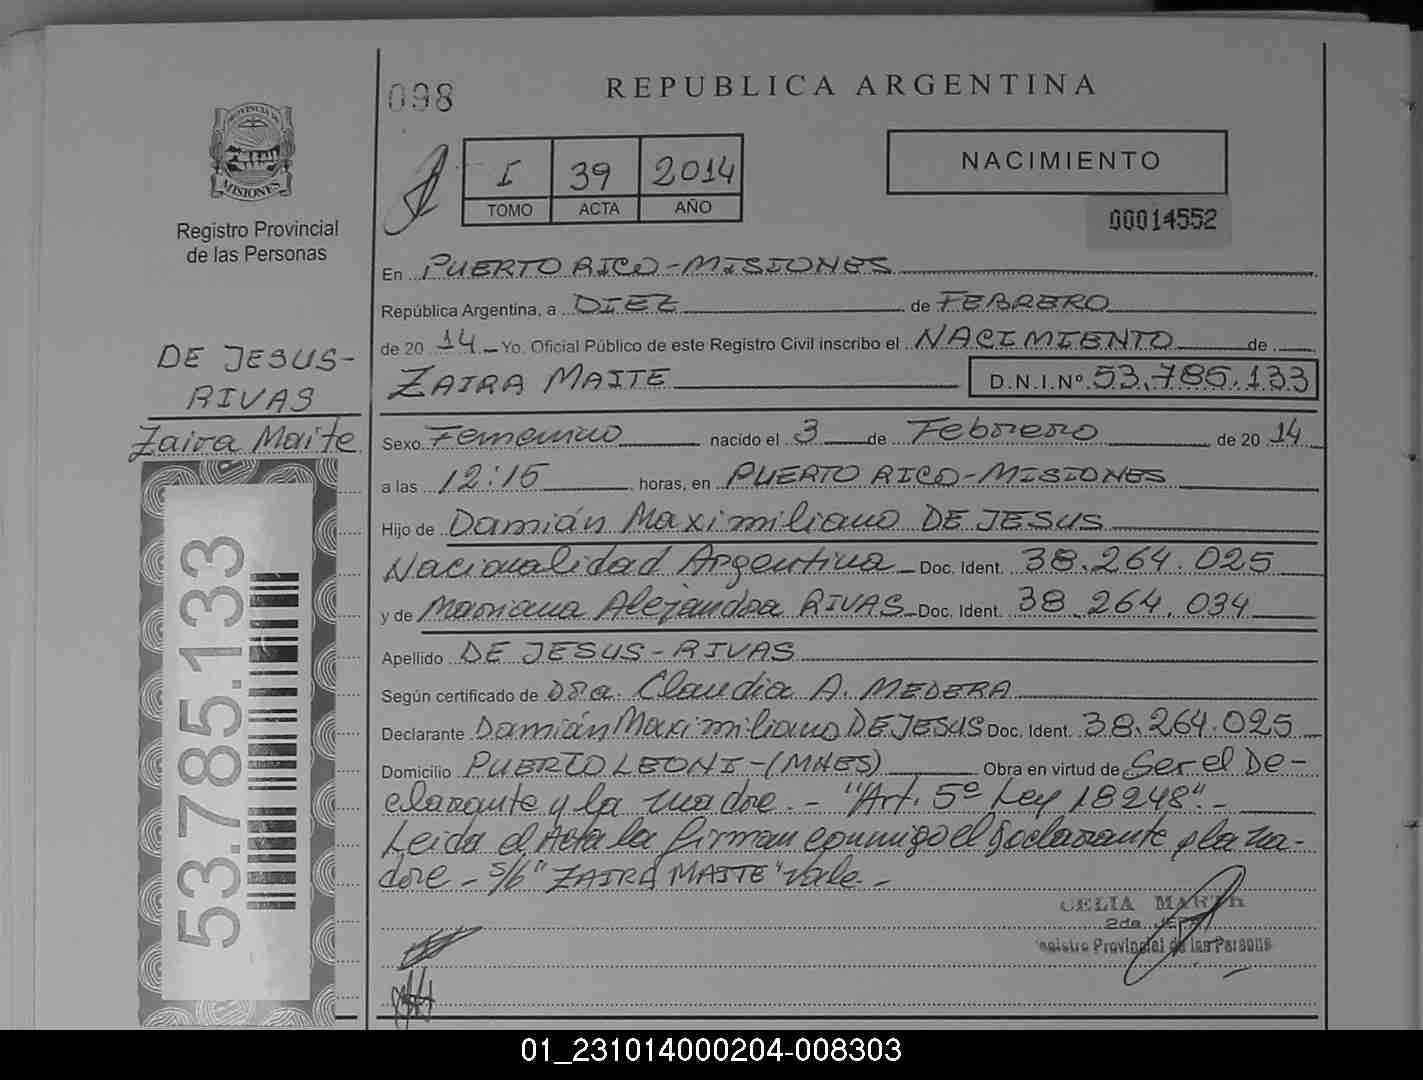 098
REPUBLICA ARGENTINA
PROVINCIA DE
MISIONES
Registro Provincial
de las Personas
I 39 2014
TOMO ACTA AÑO
NACIMIENTO
00014552
En PUERTO RICO-MISIONES
República Argentina, a DIEZ de FEBRERO
de 20 14 Yo, Oficial Público de este Registro Civil inscribo el NACIMIENTO de
ZAIRA MAITE D.N.I.Nº 53.785.133
DE JESUS-
RIVAS
Zaira Maite
53.785.133
Sexo Femenino nacido el 3 de Febrero de 20 14
a las 12:15 horas, en PUERTO RICO-MISIONES
Hijo de Damián Maximiliano DE JESUS
Nacionalidad Argentina Doc. Ident. 38.264.025
y de Mariana Alejandra RIVAS Doc. Ident. 38.264.034
Apellido DE JESUS-RIVAS
Según certificado de Dra. Claudia A. MEDERA
Declarante Damián Maximiliano DE JESUS Doc. Ident. 38.264.025
Domicilio PUERTO LEONI-(MNES) Obra en virtud de Ser el De-
clarante y la madre.- "Art. 5º Ley 18248".-
Leida el Acta la firman conmigo el declarante y la ma-
dre - s/b "ZAIRA MAITE" Vale.-
CELIA
2da. JEFA
Registro Provincial de las Personas
01_231014000204-008303